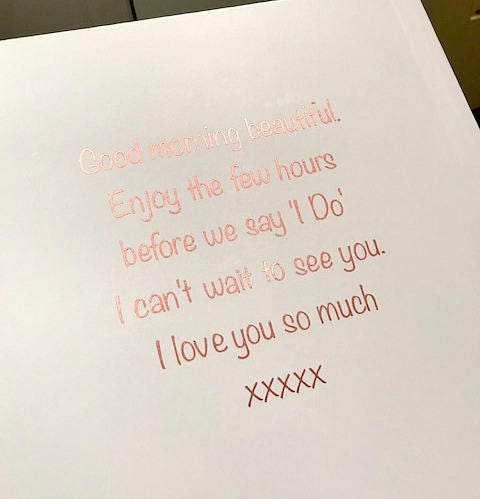 Good morning beautiful.
Enjoy the few hours
before we say 'I Do'
I can't wait to see you.
I love you so much
xxxxx